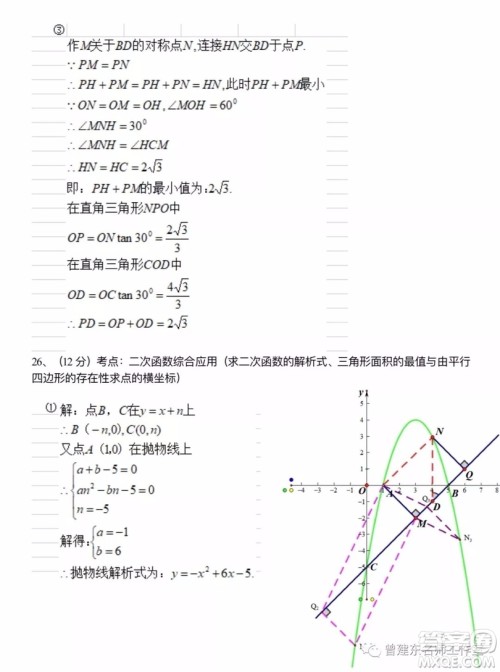 ③
作M关于BD的对称点N,连接HN交BD于点P.
∵PM=PN
∴PH+PM=PH+PN=HN,此时PH+PM最小
∵ON=OM=OH,∠MOH=60⁰
∴∠MNH=30⁰
∴∠MNH=∠HCM
∴HN=HC=2√3
即：PH+PM的最小值为：2√3.
在直角三角形NPO中
OP=ON tan 30⁰=2√3/3
在直角三角形COD中
OD=OC tan 30⁰=4√3/3
∴PD=OP+OD=2√3
26、（12分）考点：二次函数综合应用（求二次函数的解析式、三角形面积的最值与由平行
四边形的存在性求点的横坐标）
① 解：点B，C在y=x+n上
∴B（-n,0),C(0,n)
又点A（1,0）在抛物线上
∴{a+b-5=0
an²-bn-5=0
n=-5
解得：{a=-1
b=6
∴抛物线解析式为：y=-x²+6x-5.
y
5
4
3
2
1
N
Q
-4 -3 -2 -1 O A B 6 7 8
D
M
N₃
C
Q₂
曾建东名师工作室